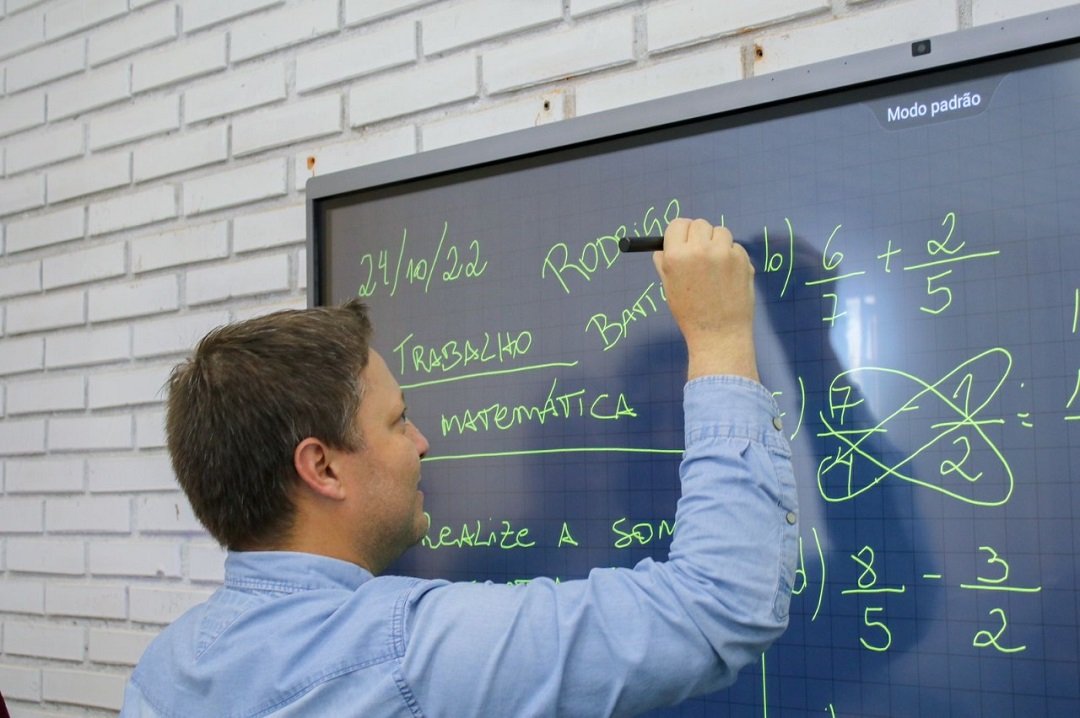 Modo padrão
24/10/22 RODRIGO
TRABALHO
MATEMÁTICA
REALIZE A SOM
b) 6/7 + 2/5
) 7/4 - 1/2 =
d) 8/5 - 3/2